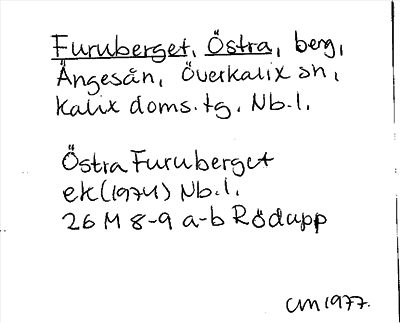 Furuberget, Östra, berg,
Ängesån, Överkalix sn,
Kalix doms. tg. Nb. l.
Östra Furuberget
ek (1974) Nb. l.
26 M 8-9 a-b Rödupp
CM 1977.